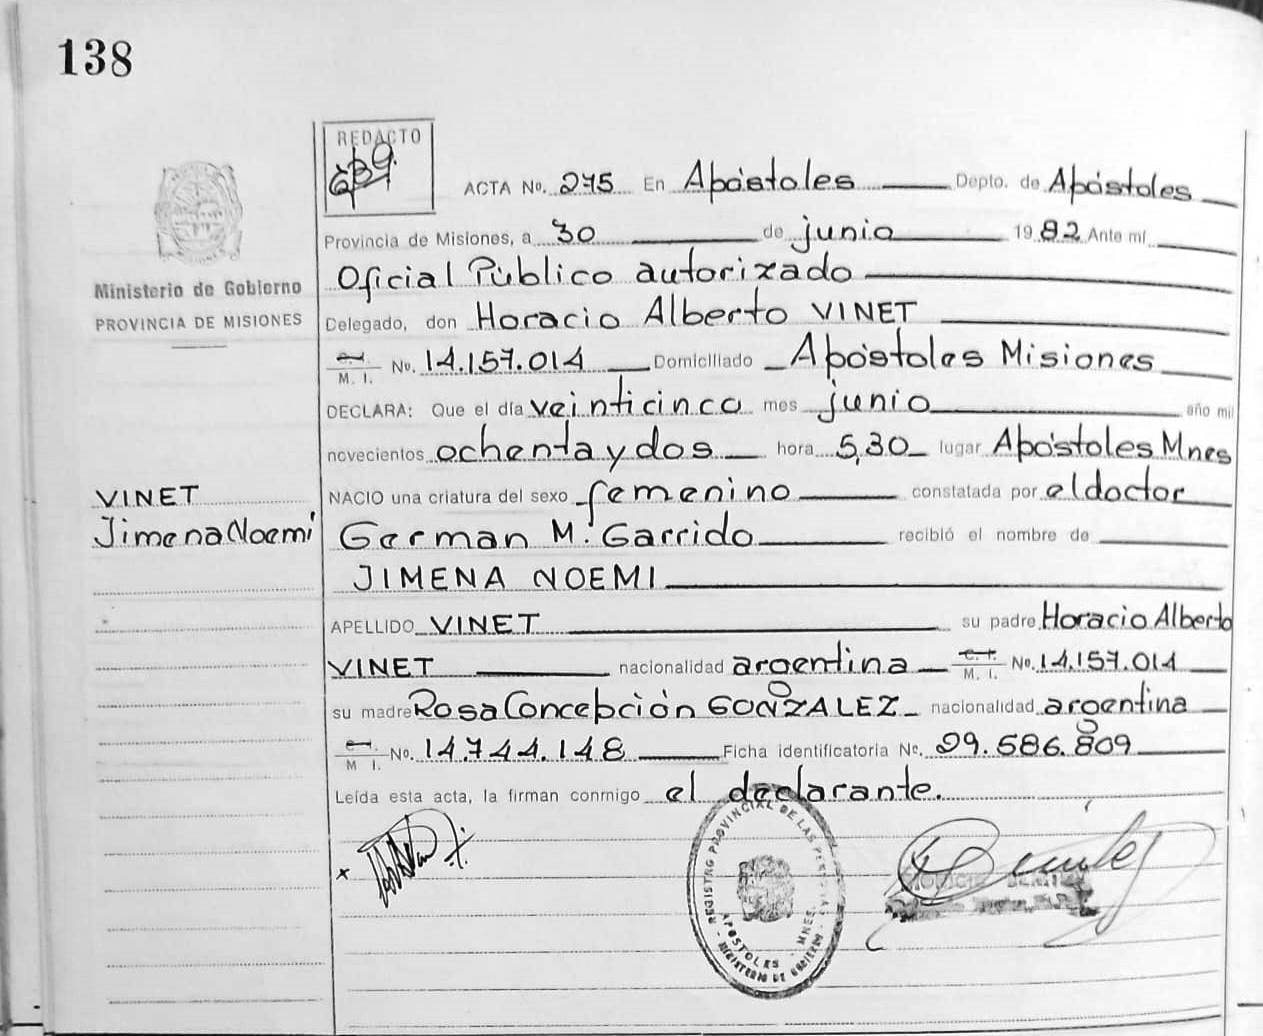 138
REDACTO
ACTA No. 275 En Apóstoles Depto. de Apóstoles
Provincia de Misiones, a 30 de junio 1982 Ante mí
Ministerio de Gobierno
PROVINCIA DE MISIONES
Oficial Público autorizado
Delegado, don Horacio Alberto VINET
M. I. No. 14.157.014 Domiciliado Apóstoles Misiones
DECLARA: Que el día veinticinco mes junio año mil
novecientos ochenta y dos hora 5,30 lugar Apóstoles Mnes
VINET
Jimena Noemí
NACIO una criatura del sexo femenino constatada por el doctor
German M. Garrido recibió el nombre de
JIMENA NOEMI
APELLIDO VINET su padre Horacio Alberto
VINET nacionalidad argentina C. I. M. I. No. 14.157.014
su madre Rosa Concepción GONZALEZ nacionalidad argentina
M. I. No. 14.744.148 Ficha identificatoria No. 29.586.809
Leída esta acta, la firman conmigo el declarante.
REGISTRO PROVINCIAL DE LAS PERSONAS
APOSTOLES - MNES.
MINISTERIO DE GOBIERNO